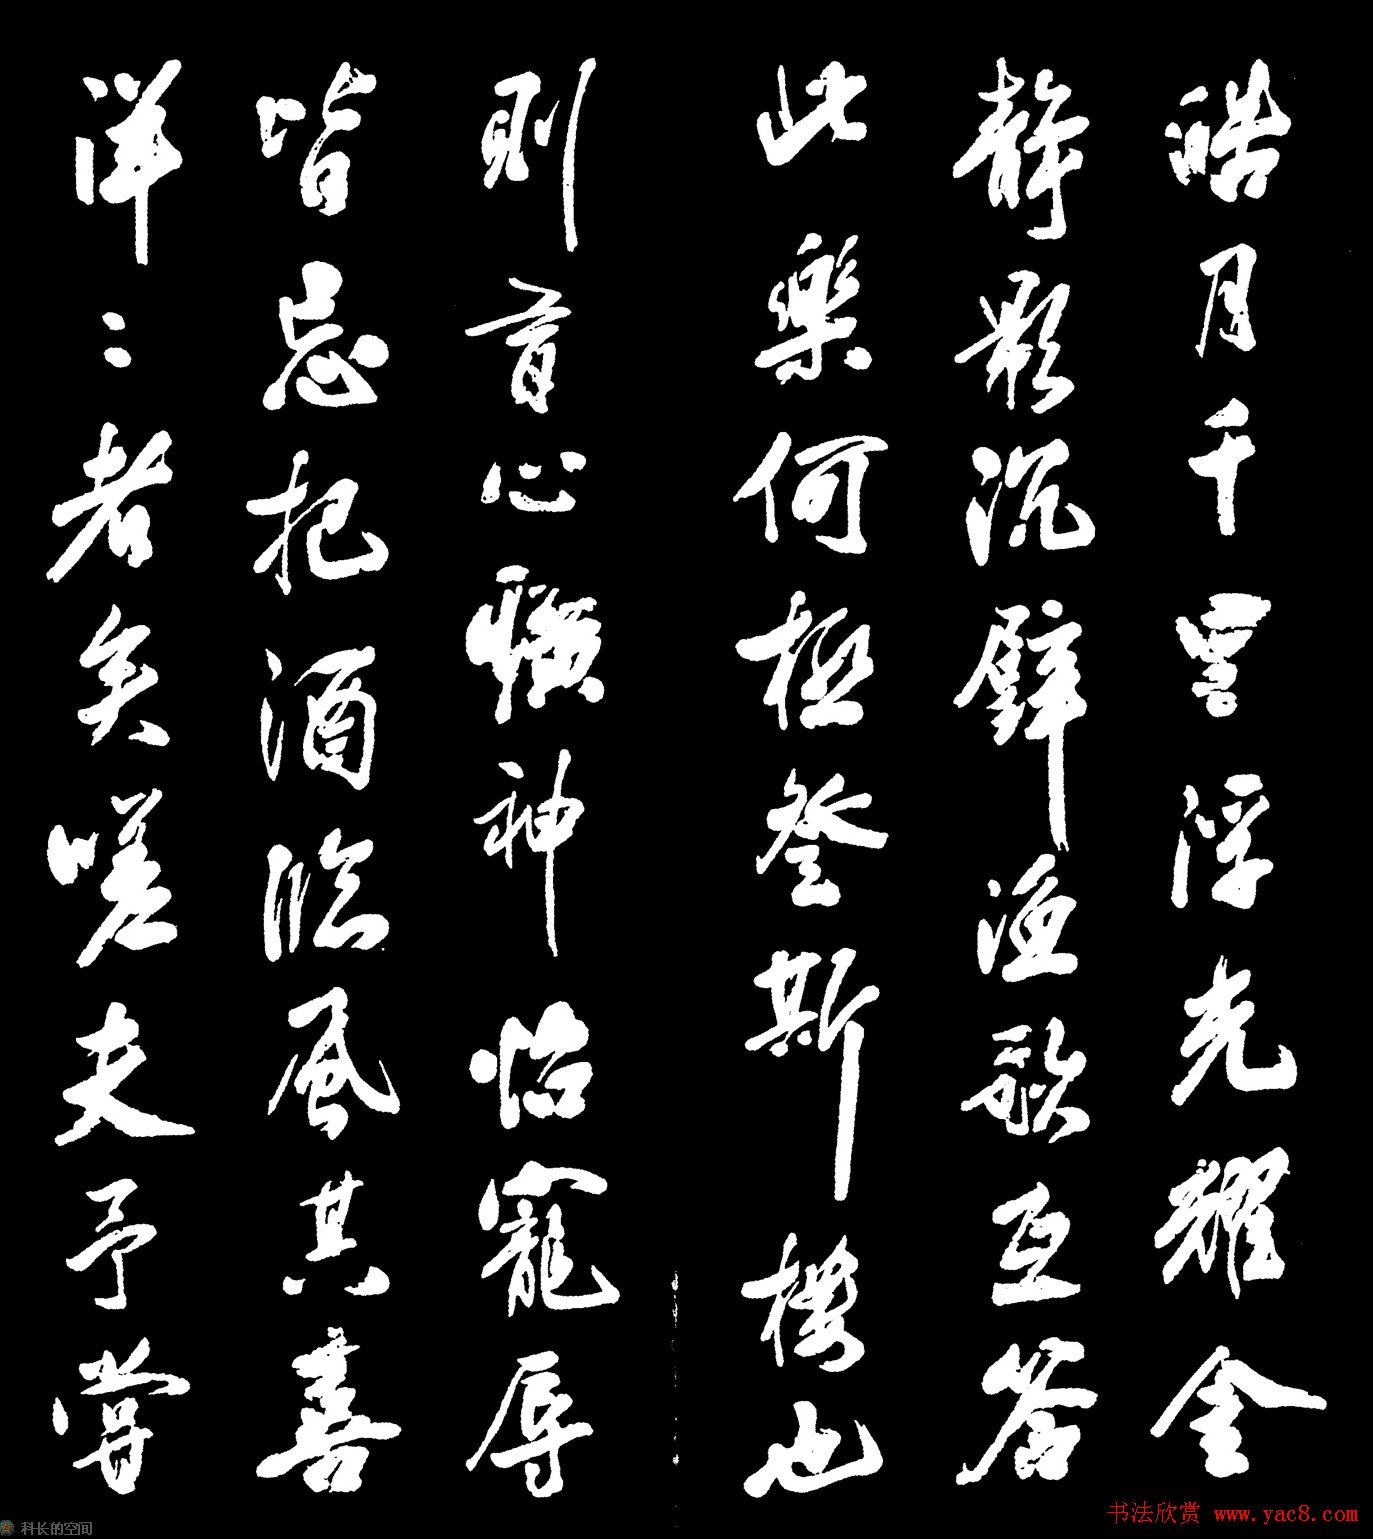 皓月千里浮光耀金
靜影沉璧漁歌互答
此樂何極登斯樓也
則有心曠神怡寵辱
皆忘把酒臨風其喜
洋〻者矣嗟夫予嘗
书法欣赏 www.yac8.com
科长的空间